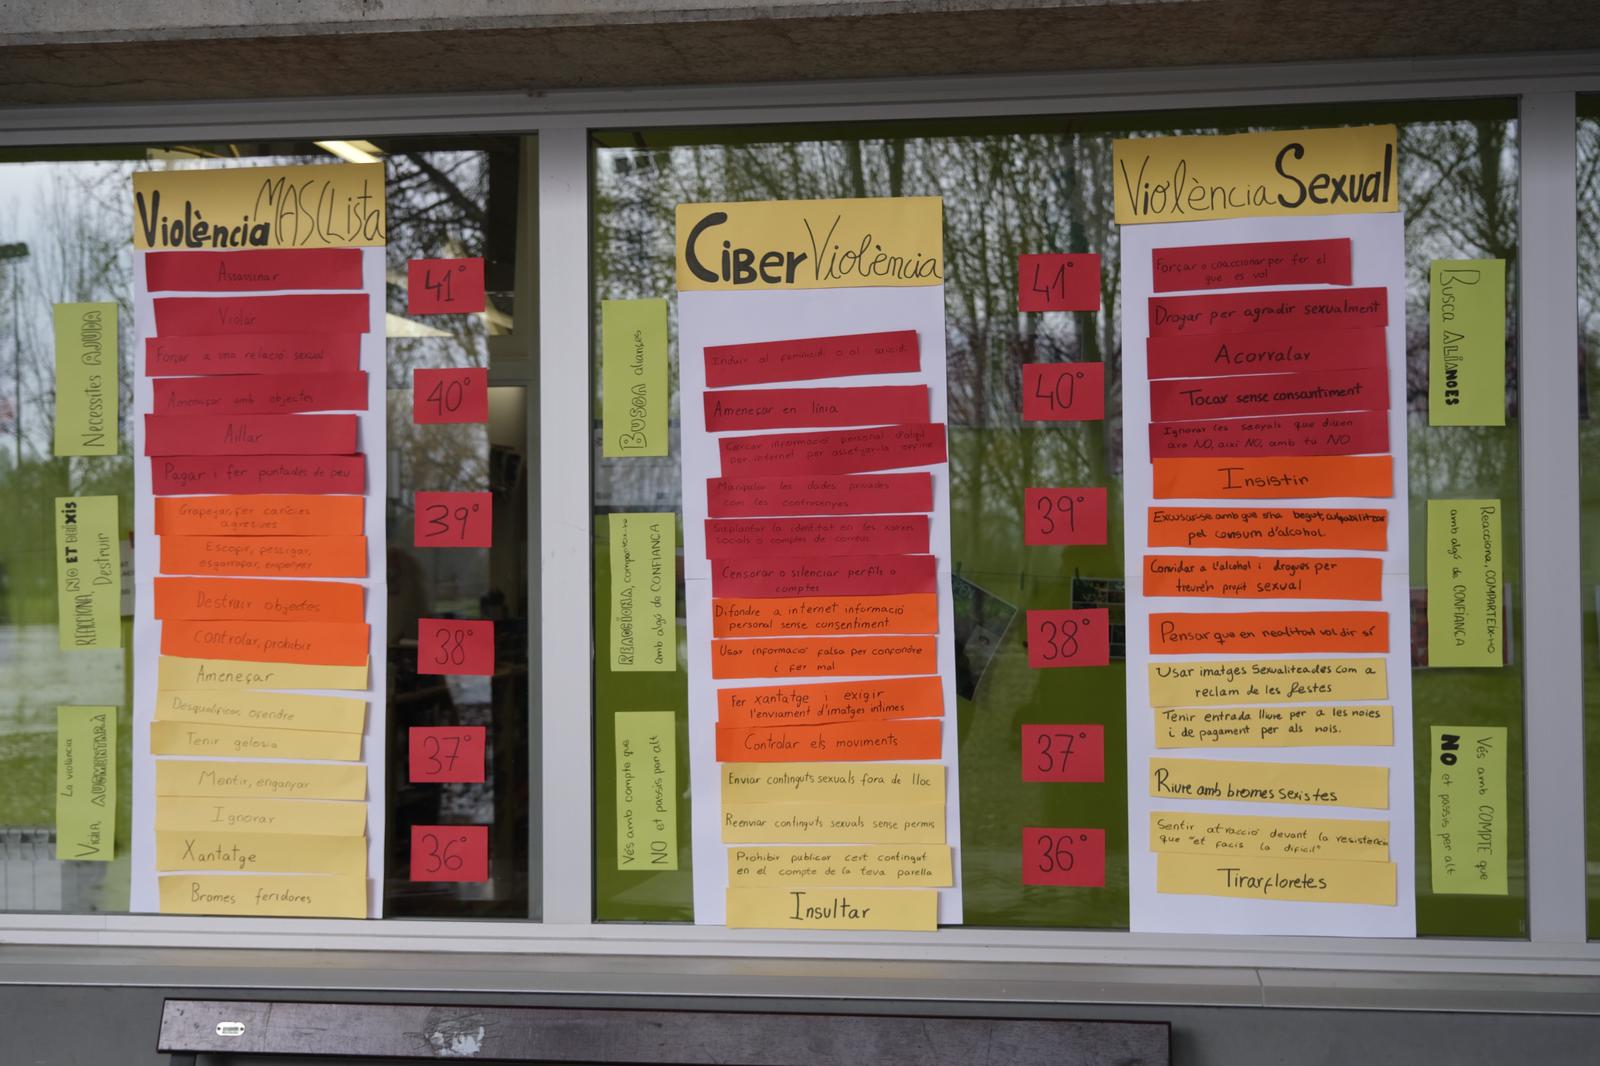 Violència MASCLista
Assassinar
Violar
Forçar a una relació sexual
Amenaçar amb objectes
Aïllar
Pagar i fer puntades de peu
Grapejar, fer carícies
agresives
Escopir, pessigar,
esgarrapar, empenyer
Destruir objectes
Controlar, prohibir
Amenaçar
Desqualificar, ofendre
Tenir gelosia
Mentir, enganyar
Ignorar
Xantatge
Bromes feridores
Necessites AJUDA
REACCIONA, NO ET DEIXIS
Destruir
La violència
AUGMENTARÀ
41°
40°
39°
38°
37°
36°
CIBER Violència
Induir al feminicidi o al suïcidi
Amenaçar en línia
Cercar informació personal d'algú
per internet per assetjar-la
Manipular les dades privades
com les contrasenyes
Suplantar la identitat en les xarxes
socials o comptes de correus
Censurar o silenciar perfils o
comptes
Difondre a internet informació
personal sense consentiment
Usar informació falsa per confondre
i fer mal
Fer xantatge i exigir
l'enviament d'imatges íntimes
Controlar els moviments
Enviar continguts sexuals fora de lloc
Reenviar continguts sexuals sense permís
Prohibir publicar cert contingut
en el compte de la teva parella
Insultar
Busca aliances
REACCIONA, comparteix-ho
amb algú de CONFIANÇA
Vés amb compte que
NO et passis per alt
41°
40°
39°
38°
37°
36°
Violència Sexual
Forçar o coaccionar per fer el
que es vol
Drogar per agradir sexualment
Acorralar
Tocar sense consantiment
Ignorar les senyals que diuen
ara NO, així NO, amb tu NO
Insistir
Excusar-se amb que s'ha begut, culpabilitzar
pel consum d'alcohol
Convidar a l'alcohol i drogues per
treure'n profit sexual
Pensar que en realitat vol dir sí
Usar imatges Sexualitzades com a
reclam de les festes
Tenir entrada lliure per a les noies
i de pagament per als nois.
Riure amb bromes sexistes
Sentir atracció davant la resistència
que "et facis la difícil"
Tirar floretes
Busca
Reacciona, COMPARTEIX-HO
amb algú de CONFIANÇA
Vés amb COMPTE que
NO et passis per alt